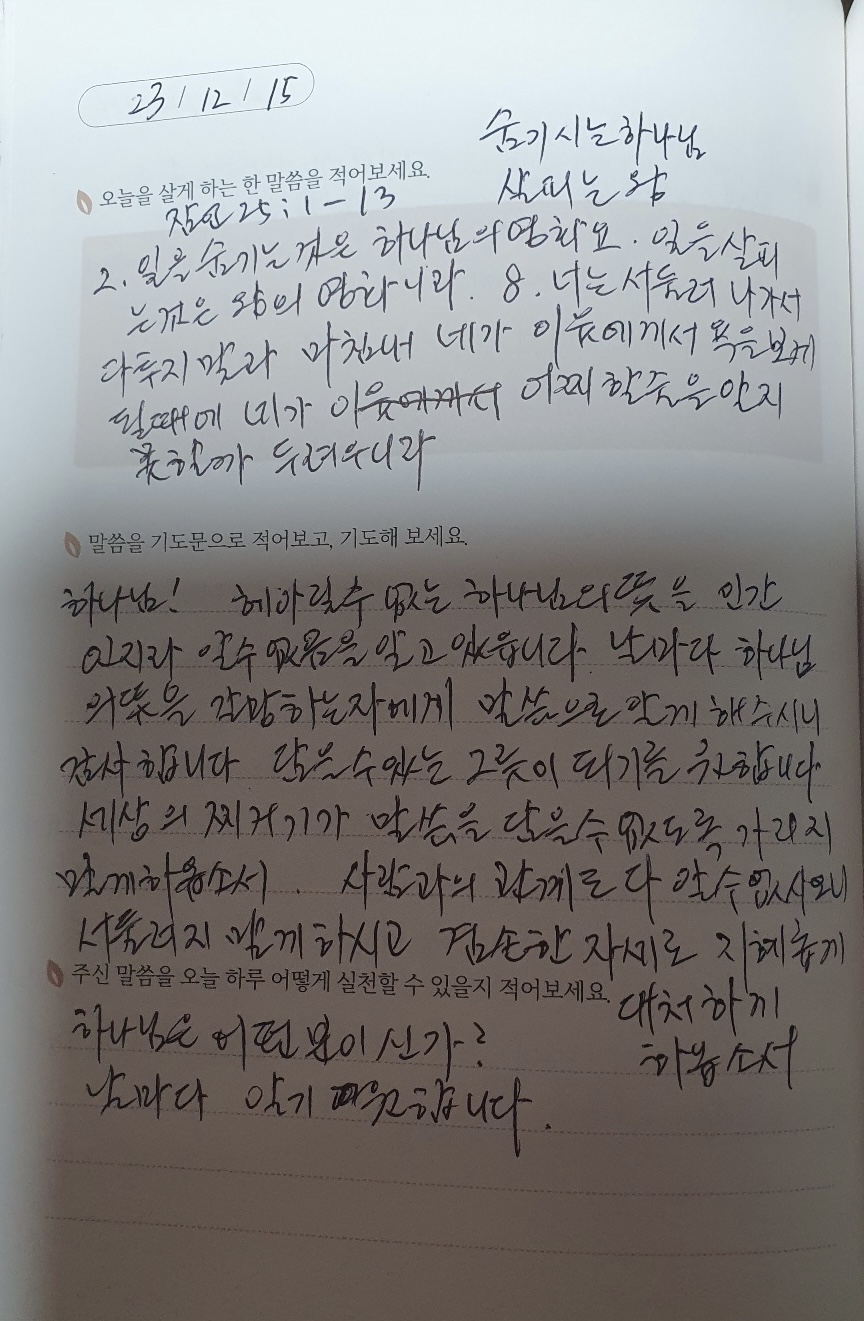 23 / 12 / 15
숨기시는 하나님
살피는 왕
오늘을 살게 하는 한 말씀을 적어보세요.
잠언 25 : 1 - 13
2. 일을 숨기는 것은 하나님의 영화요. 일을 살피
는것은 왕의 영화니라. 8. 너는 서둘러 나가서
다투지 말라 마침내 네가 이웃에게서 욕을 보게
될때에 네가 이웃에게서 어찌 할줄을 알지
못할까 두려우니라
말씀을 기도문으로 적어보고, 기도해 보세요.
하나님! 헤아릴수 없는 하나님의 뜻을 인간
인지라 알수 없음을 알고 있습니다. 날마다 하나님
의 뜻을 갈망하는자에게 말씀으로 알게 해주시니
감사합니다 담을 수 있는 그릇이 되기를 구합니다
세상의 찌거기가 말씀을 담을수 없도록 가리지
말게하옵소서. 사람과의 관계도 다 알수 없사오니
서둘러지 말게 하시고 겸손한 자세로 지혜롭게
대처하게
하옵소서
주신 말씀을 오늘 하루 어떻게 실천할 수 있을지 적어보세요.
하나님은 어떤 분이신가?
날마다 알기 합니다.